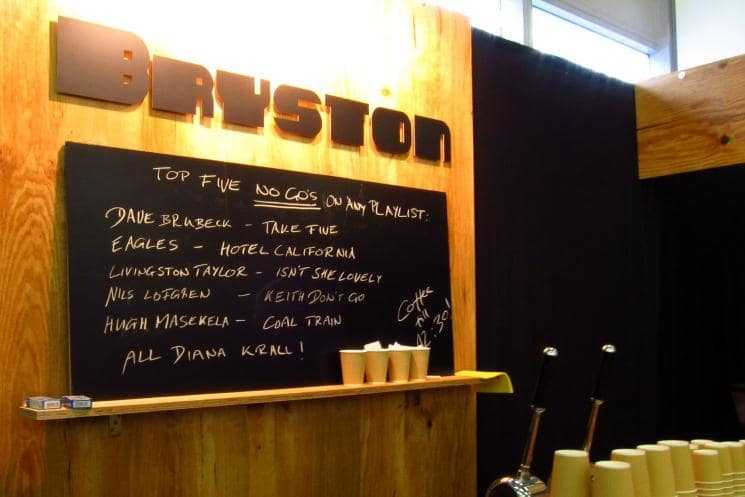 BRYSTON
TOP FIVE NO GO'S ON ANY PLAYLIST:
DAVE BRUBECK - TAKE FIVE
EAGLES - HOTEL CALIFORNIA
LIVINGSTON TAYLOR - ISN'T SHE LOVELY
NILS LOFGREN - KEITH DON'T GO
HUGH MASEKELA - COAL TRAIN
ALL DIANA KRALL!
Coffee
till
12:30!